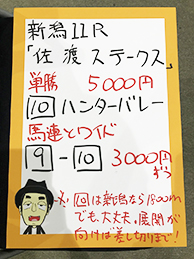 新潟11R
「佐渡ステークス」
単勝 5000円
10 ハンターバレー
馬連とワイド
9-10 3000円
ずつ
10は新潟なら1800m
でも大丈夫。展開が
向けば差し切りまで!